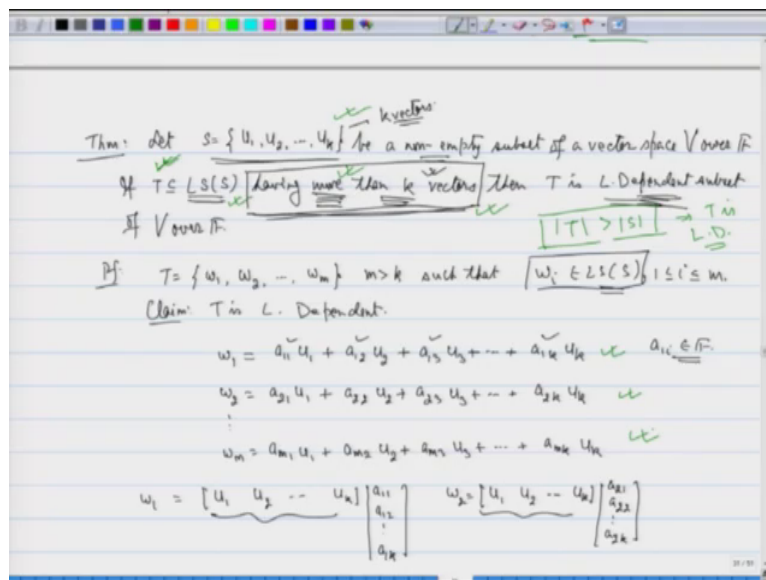 k vectors.
Thm: Let S = { u₁, u₂, ..., uₖ } be a non-empty subset of a vector space V over 𝔽
If T ⊆ LS(S) having more than k vectors then T is L. Dependent subset
of V over 𝔽.
|T| > |S| → T is L.D.
Pf: T = { w₁, w₂, ..., wₘ } m > k such that wᵢ ∈ LS(S), 1 ≤ i ≤ m.
Claim: T is L. Dependent.
w₁ = a₁₁ u₁ + a₁₂ u₂ + a₁₃ u₃ + ... + a₁ₖ uₖ a₁ᵢ ∈ 𝔽.
w₂ = a₂₁ u₁ + a₂₂ u₂ + a₂₃ u₃ + ... + a₂ₖ uₖ
⋮
wₘ = aₘ₁ u₁ + aₘ₂ u₂ + aₘ₃ u₃ + ... + aₘₖ uₖ
w₁ = [u₁ u₂ ... uₖ] [a₁₁ a₁₂ ⋮ a₁ₖ] w₂ = [u₁ u₂ ... uₖ] [a₂₁ a₂₂ ⋮ a₂ₖ]